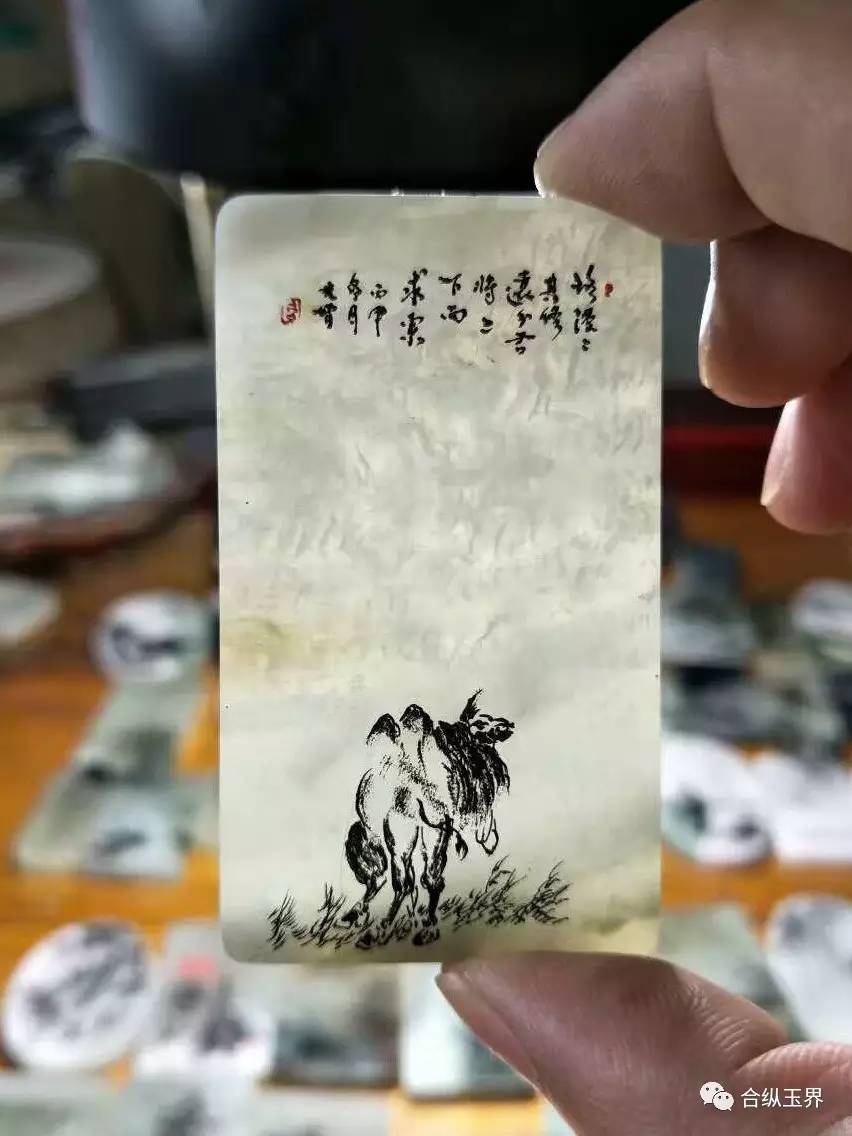 路漫々
其修
遠兮吾
将上
下而
求索
丙申
冬月
合纵玉界